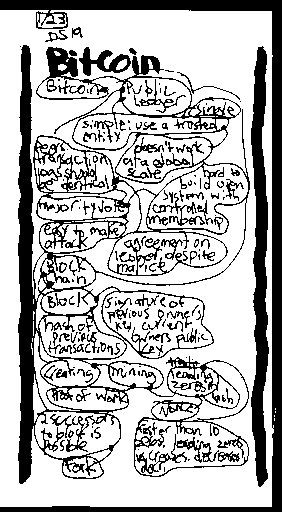 1/23
DS 19
Bitcoin
Bitcoin
Public
Ledger
simple
simple: use a trusted
entity
doesn't work
at a global
scale
peers
transaction
logs should
be identical
hard to
build open
system with
controlled
membership
majority vote
easy to make
attack
agreement on
ledger despite
malice
Block
chain
Block
signature of
previous owners
key, current
owners public
key
hash of
previous
transactions
creating
mining
leading
zeros in
hash
Proof of work
Nonce
2 successors
to block is
possible
Fork
faster than 10
leading zeros
increases, decreases